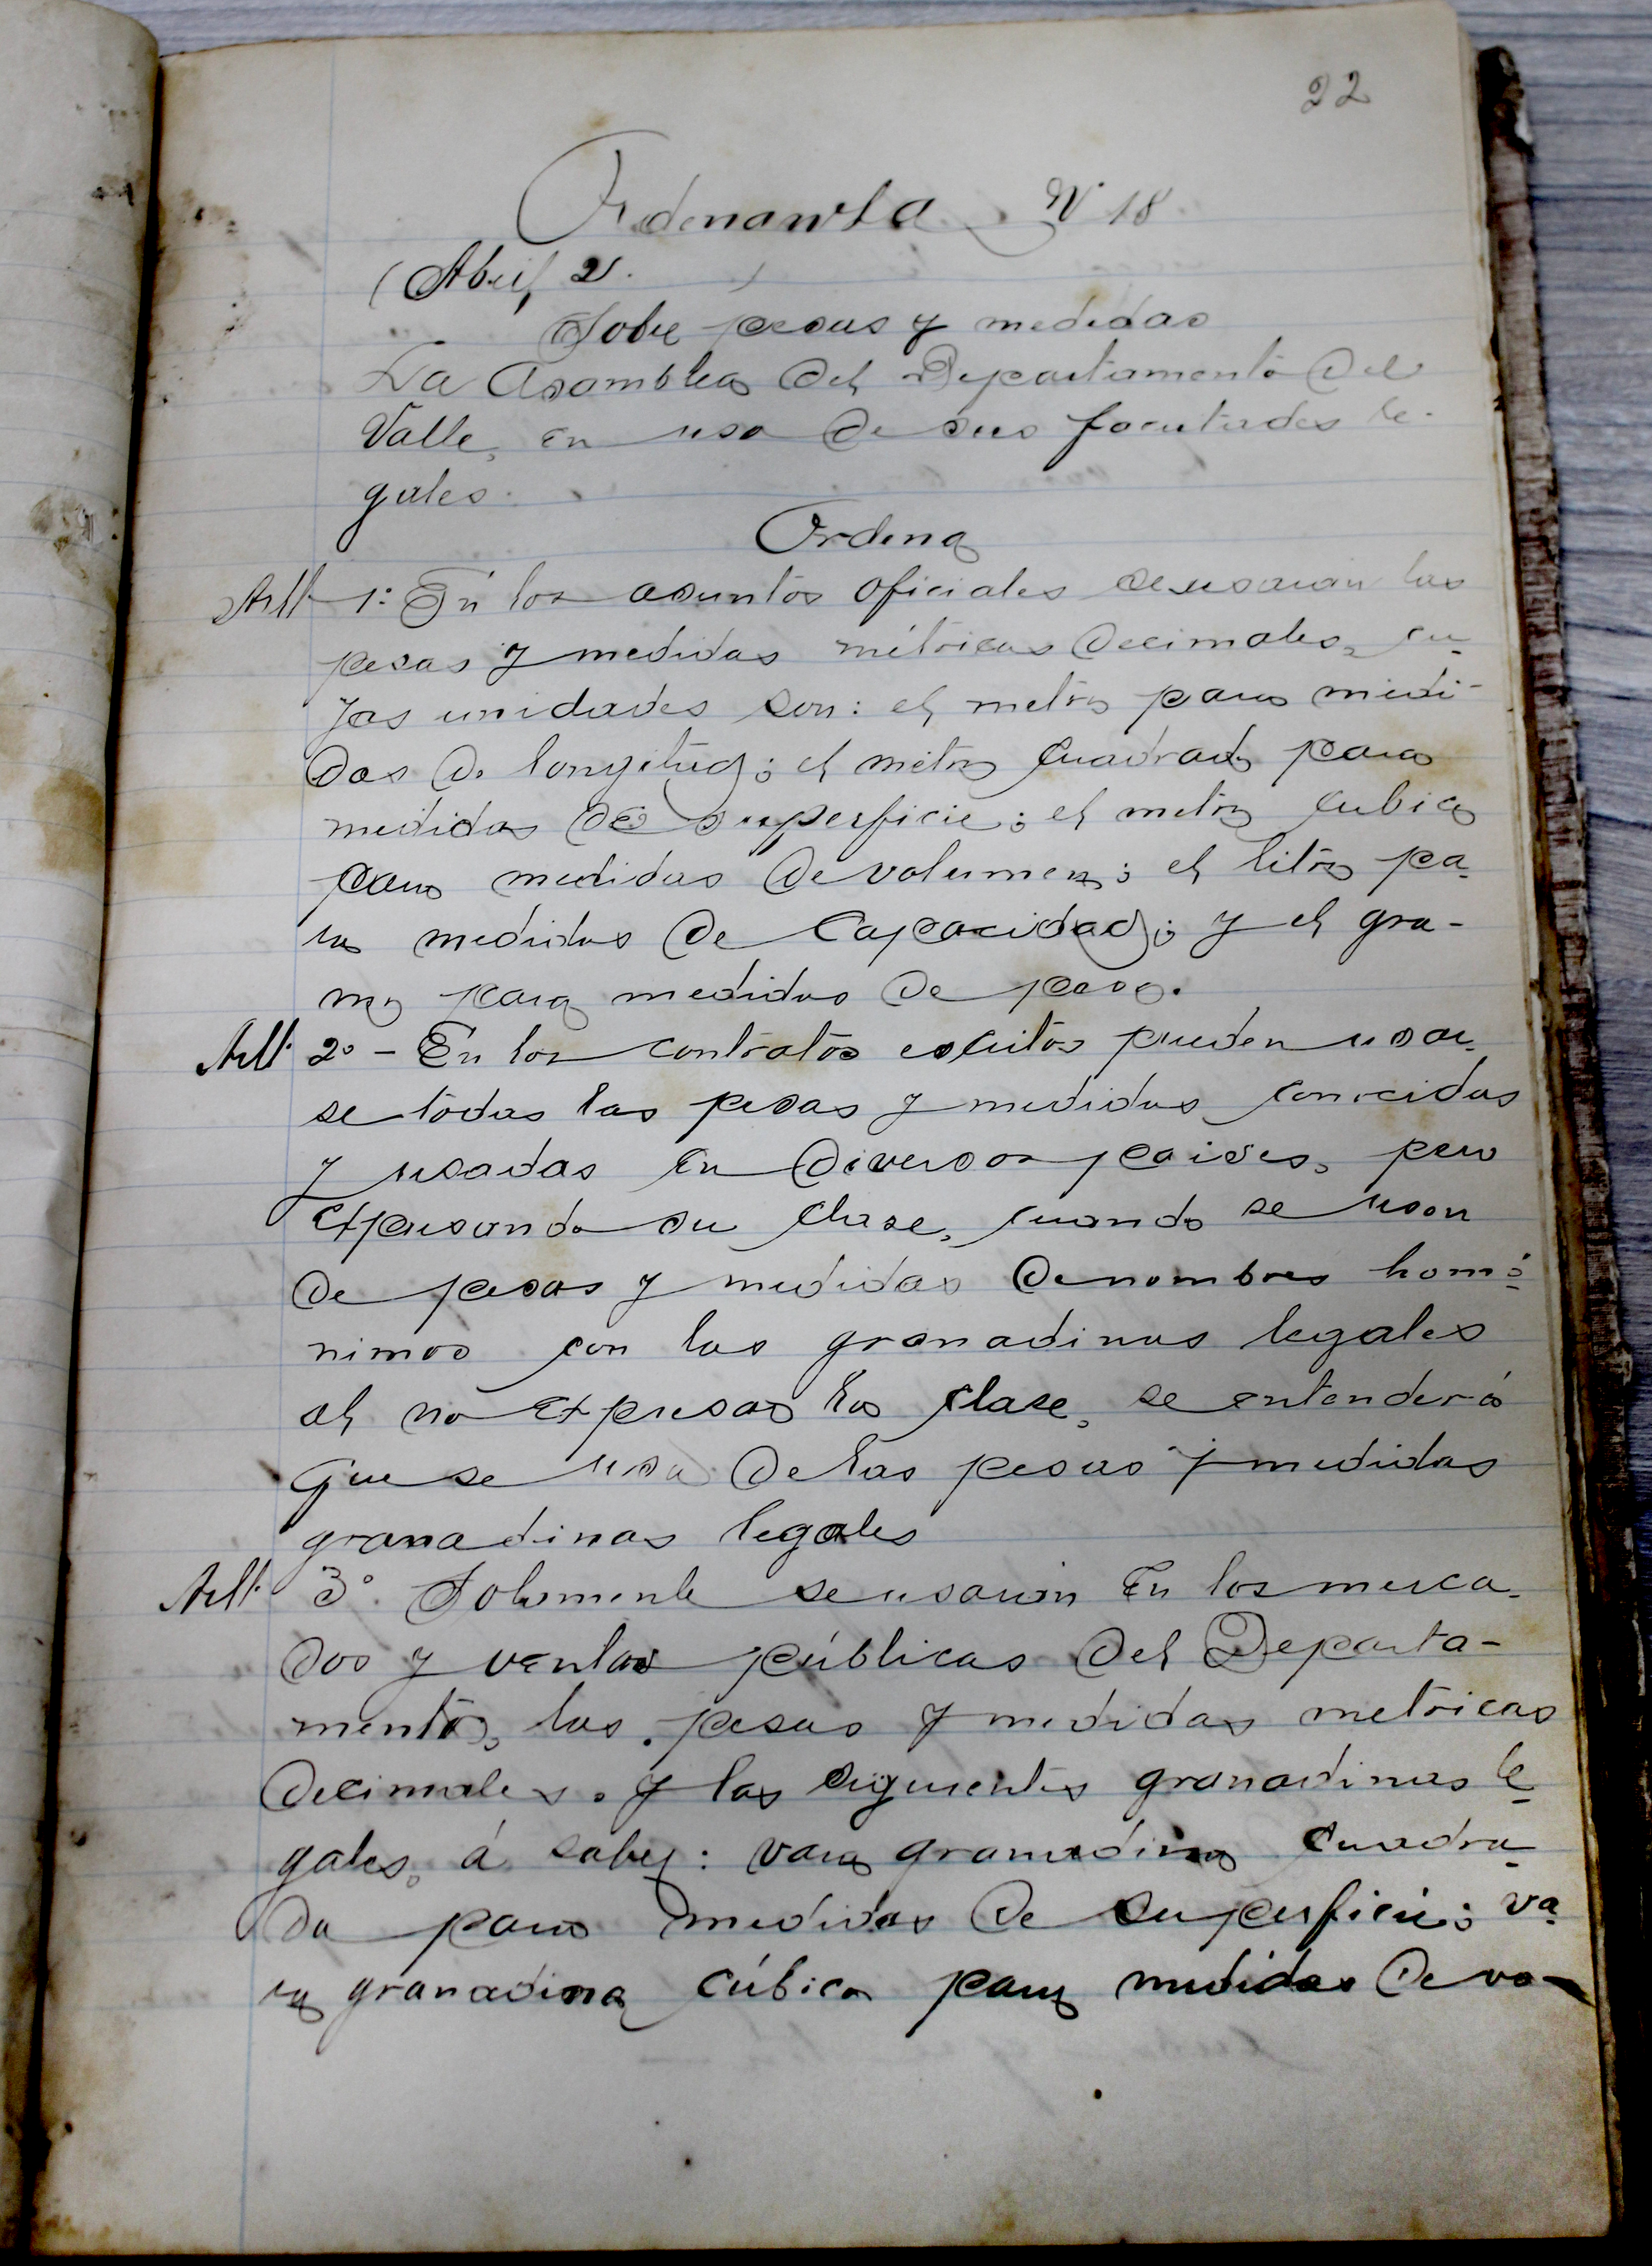 22
Ordenanza Nº 18
(Abril 21. )
Sobre pesas y medidas
La Asamblea del Departamento del
Valle, en uso de sus facultades le-
gales.
Ordena
Art 1º En los asuntos oficiales se usarán las
pesas y medidas métricas decimales, cu-
yas unidades son: el metro para medi-
das de longitud; el metro cuadrado para
medidas de superficie; el metro cubico
para medidas de volumen; el litro pa-
ra medidas de Capacidad; y el gra-
mo para medidas de peso.
Art. 2º - En los contratos escritos pueden usar-
se todas las pesas y medidas conocidas
y usadas en diversos paises, pero
expresando su clase, cuando se usan
de pesas y medidas de nombres homó-
nimos con las granadinas legales
al no expresar la clase, se entenderá
que se usa de las pesas y medidas
granadinas legales
Art. 3º. Solamente se usarán en los merca-
dos y ventas públicas del Departa-
mento, las pesas y medidas metricas
decimales. y las siguientes granadinas le-
gales, á saber: vara granadina cuadra-
da para medidas de superficie; va-
ra granadina cúbica para medidas de vo-